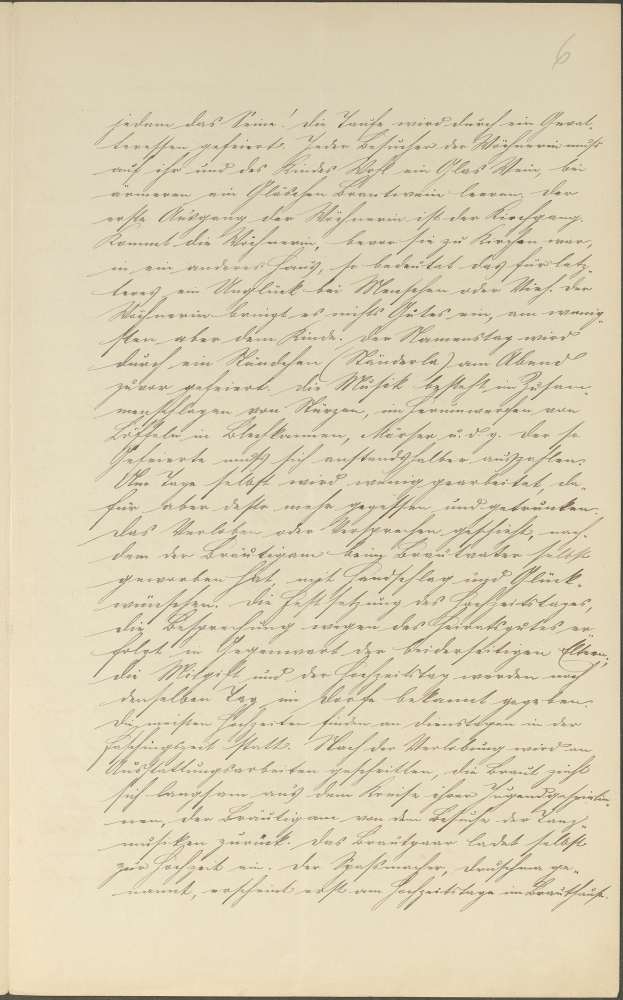 6
jedem das Seine! Die Taufe wird durch ein Geval-
teressen gefeiert. Jeder Besucher der Wöchnerin muß
auf ihr und des Kindes Wohl ein Glas Wein, bei
ärmeren ein Gläschen Brantwein leeren. Der
erste Ausgang der Wöchnerin ist der Kirchgang.
Kommt die Wöchnerin, bevor sie zu Kirchen war,
in ein anderes Haus, so bedeutet das für letz-
teres ein Unglück bei Menschen oder Vieh. Der
Wöchnerin bringt es nichts Gutes ein, am wenig-
sten aber dem Kinde. Der Namenstag wird
durch ein Ständchen (Ständerla) am Abend
zuvor gefeiert. Die Musik besteht in Zusam-
menschlagen von Stürzen, im Herumwerfen von
Löffeln in Blechkannen, Mörser u. d. g. Der so
Gefeierte muß sich anstandshalber auszahlen.
Am Tage selbst wird wenig gearbeitet, da-
für aber desto mehr gegessen und getrunken.
Das Verloben oder Versprechen geschieht, nach-
dem der Bräutigam beim Brautvater selbst
geworben hat, mit Handschlag und Glück-
wünschen. Die Festsetzung des Hochzeitstages,
die Besprechung wegen des Heiratsgutes er-
folgt in Gegenwart der beiderseitigen Eltern;
die Mitgift und der Hochzeitstag werden noch
denselben Tag im Dorfe bekannt gegeben.
Die meisten Hochzeiten finden an Dienstagen in der
Faschingszeit statt. Nach der Verlobung wird an
Ausstattungsarbeiten geschritten, die Braut zieht
sich langsam aus dem Kreise ihrer Jugendgespielin-
nen, der Bräutigam von dem Besuche der Tanz-
musiken zurück. Das Brautpaar ladet selbst
zur Hochzeit ein. Der Spaßmacher, Druschma ge-
nannt, erscheint erst am Hochzeitstage im Brauthause.